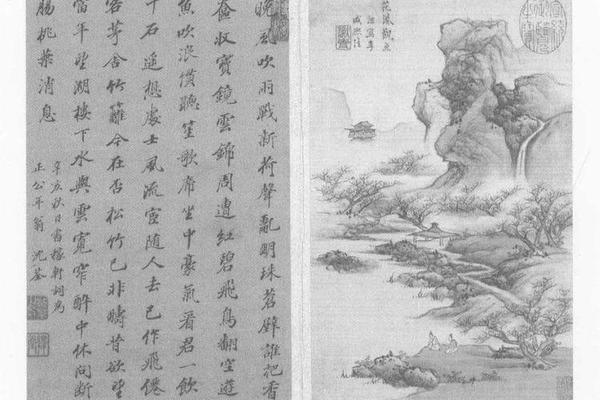 晚風吹雨戰新荷聲亂明珠蒼璧誰把香
奩收寶鏡雲錦周遭紅碧飛鳥翻空遊
魚吹浪慣聽笙歌席坐中豪氣看君一飲
千石遙想處士風流隨人去已作飛僊
客茅舍竹籬今在否松竹已非疇昔欲望
當年望湖樓下水與雲寬窄醉中休問斷
腸桃葉消息
辛亥秋日書稼軒詞為
正公年翁 沈荃